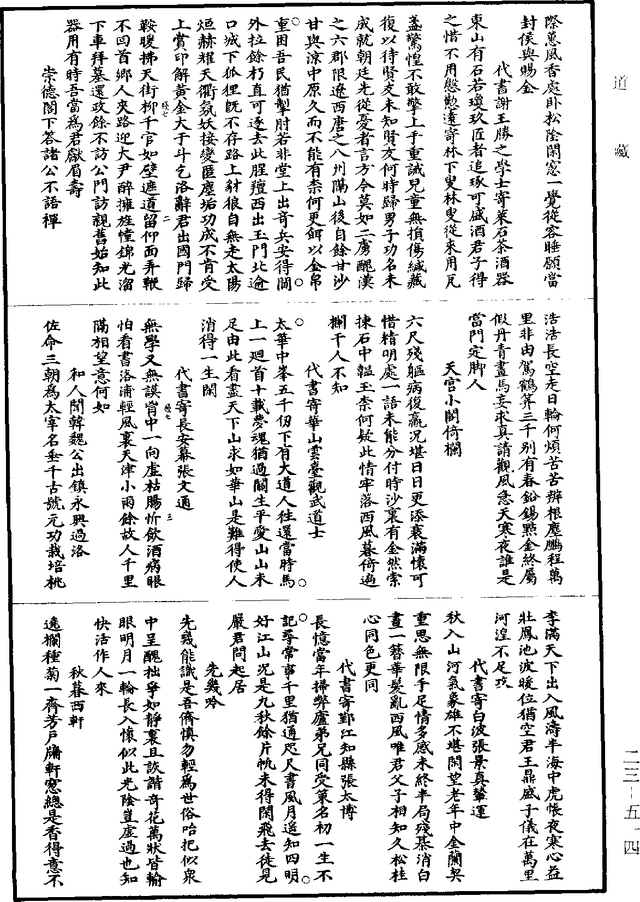 道藏
際蕙風香處臥松陰閑窓一覺從容睡願當
封侯與賜金
代書謝王勝之學士寄萊石茶酒器
東山有石若瓊玖匠者追琢可盛酒君子得
之惜不用慇懃遠寄林下叟林叟從來用瓦
盞驚惶不敢擎上手重誡兒童無損傷緘藏
復以待賢友未知賢友何時歸男子功名未
成就朝廷先從憂者言方今莫如二虜醜漢
之六郡限遼西唐之八州隔山後自餘甘沙
甘與涼中原久而不能有柰何更餌以金帛
重困吾民猶掣肘若非堂上出奇兵安得閫
外拉餘朽直可逐去此腥羶西出玉門北逾
口城下狐狸旣不存路上豺狼自無走太陽
烜赫耀天衢氛妖接變匿塵垢功成不肯受
上賞印解黃金大于斗乞洛辭君出國門歸
鞍暖拂天街柳千官如壁遮道留仰面弄鞭
不回首鄉人夾路迎大尹醉擁旌幢錦光溜
下車拜墓還政餘不訪公門訪親舊始知此
器用有時吾當爲君獻眉壽
崇德閣下答諸公不語禪
浩浩長空走日輪何煩苦苦辨根塵鵬程萬
里非由駕鶴筭三千别有春鉛錫點金終屬
假丹青畫馬妄求真請觀風急天寒夜誰是
當門定脚人
天宫小閣倚欄
六尺殘軀病復羸况堪日日更添衰滿懷可
惜精明處一語未能分付時沙裏有金然索
揀石中韞玉柰何疑此情牢落西風暮倚遍
欄干人不知
代書寄華山雲臺觀武道士
太華中峯五千仭下有大道人往還當時馬
上一迴首十載夢魂猶過關生平愛山山未
足由此看盡天下山求如華山是難得使人
消得一生閑
代書寄長安幕張文通
無學又無謨胷中一向虚枯腸忻飲酒病眼
怕看書洛浦輕風裏天津小雨餘故人千里
隔相望意何如
和人聞韓魏公出鎮永興過洛
佐命三朝爲太宰名垂千古號元功栽培桃
李滿天下出入風濤半海中虎帳夜寒心益
壯鳳池波暖位猶空君王鼎盛子儀在萬里
河湟不足攻
代書寄白波張景真輦運
秋入山河氣象雄不堪閑望老年中金蘭契
重思無限手足情多感未終半局殘棊消白
晝一簪華髮亂西風唯君父子相知久松桂
心同色更同
代書寄鄞江知縣張太博
長憶當年掃弊廬弟兄同受策名初一生不
記尋常事千里猶通咫尺書風月遥知四明
好江山况是九秋餘片帆未得閑飛去徒見
嚴君問起居
先幾吟
先幾能識是吾儕慎勿輕爲世俗咍把似衆
中呈醜拙爭如静裏且詼諧奇花萬狀皆輸
眼明月一輪長入懷似此光陰豈虚過也知
快活作人來
秋暮西軒
遶欄種菊一齊芳戶牖軒窓總是香得意不
二三-五一四